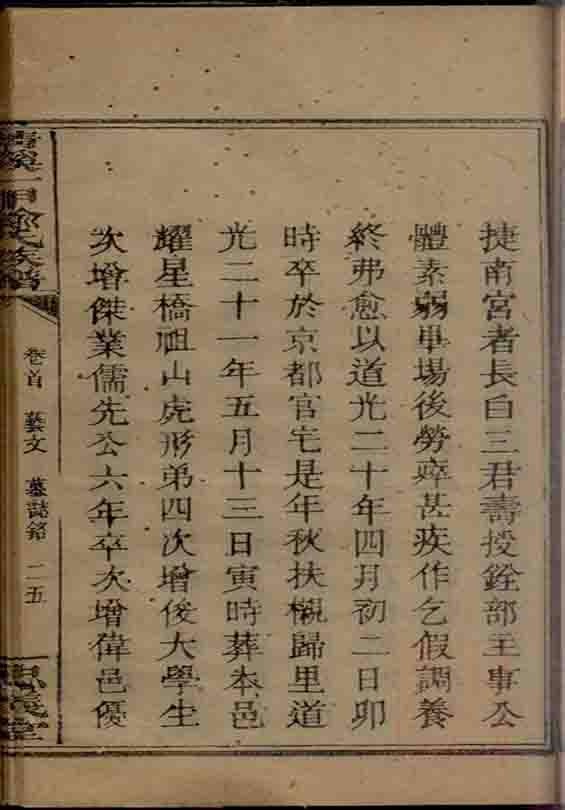 捷南宮者長白三君壽授銓部主事公
體素弱畢場後勞瘁甚疾作乞假調養
終弗愈以道光二十年四月初二日卯
時卒於京都官宅是年秋扶櫬歸里道
光二十一年五月十三日寅時葬本邑
耀星橋祖山虎形弟四次增俊大學生
次增傑業儒先公六年卒次增偉邑優
一甲 氏族譜
卷首 藝文 墓誌銘 二五
義堂